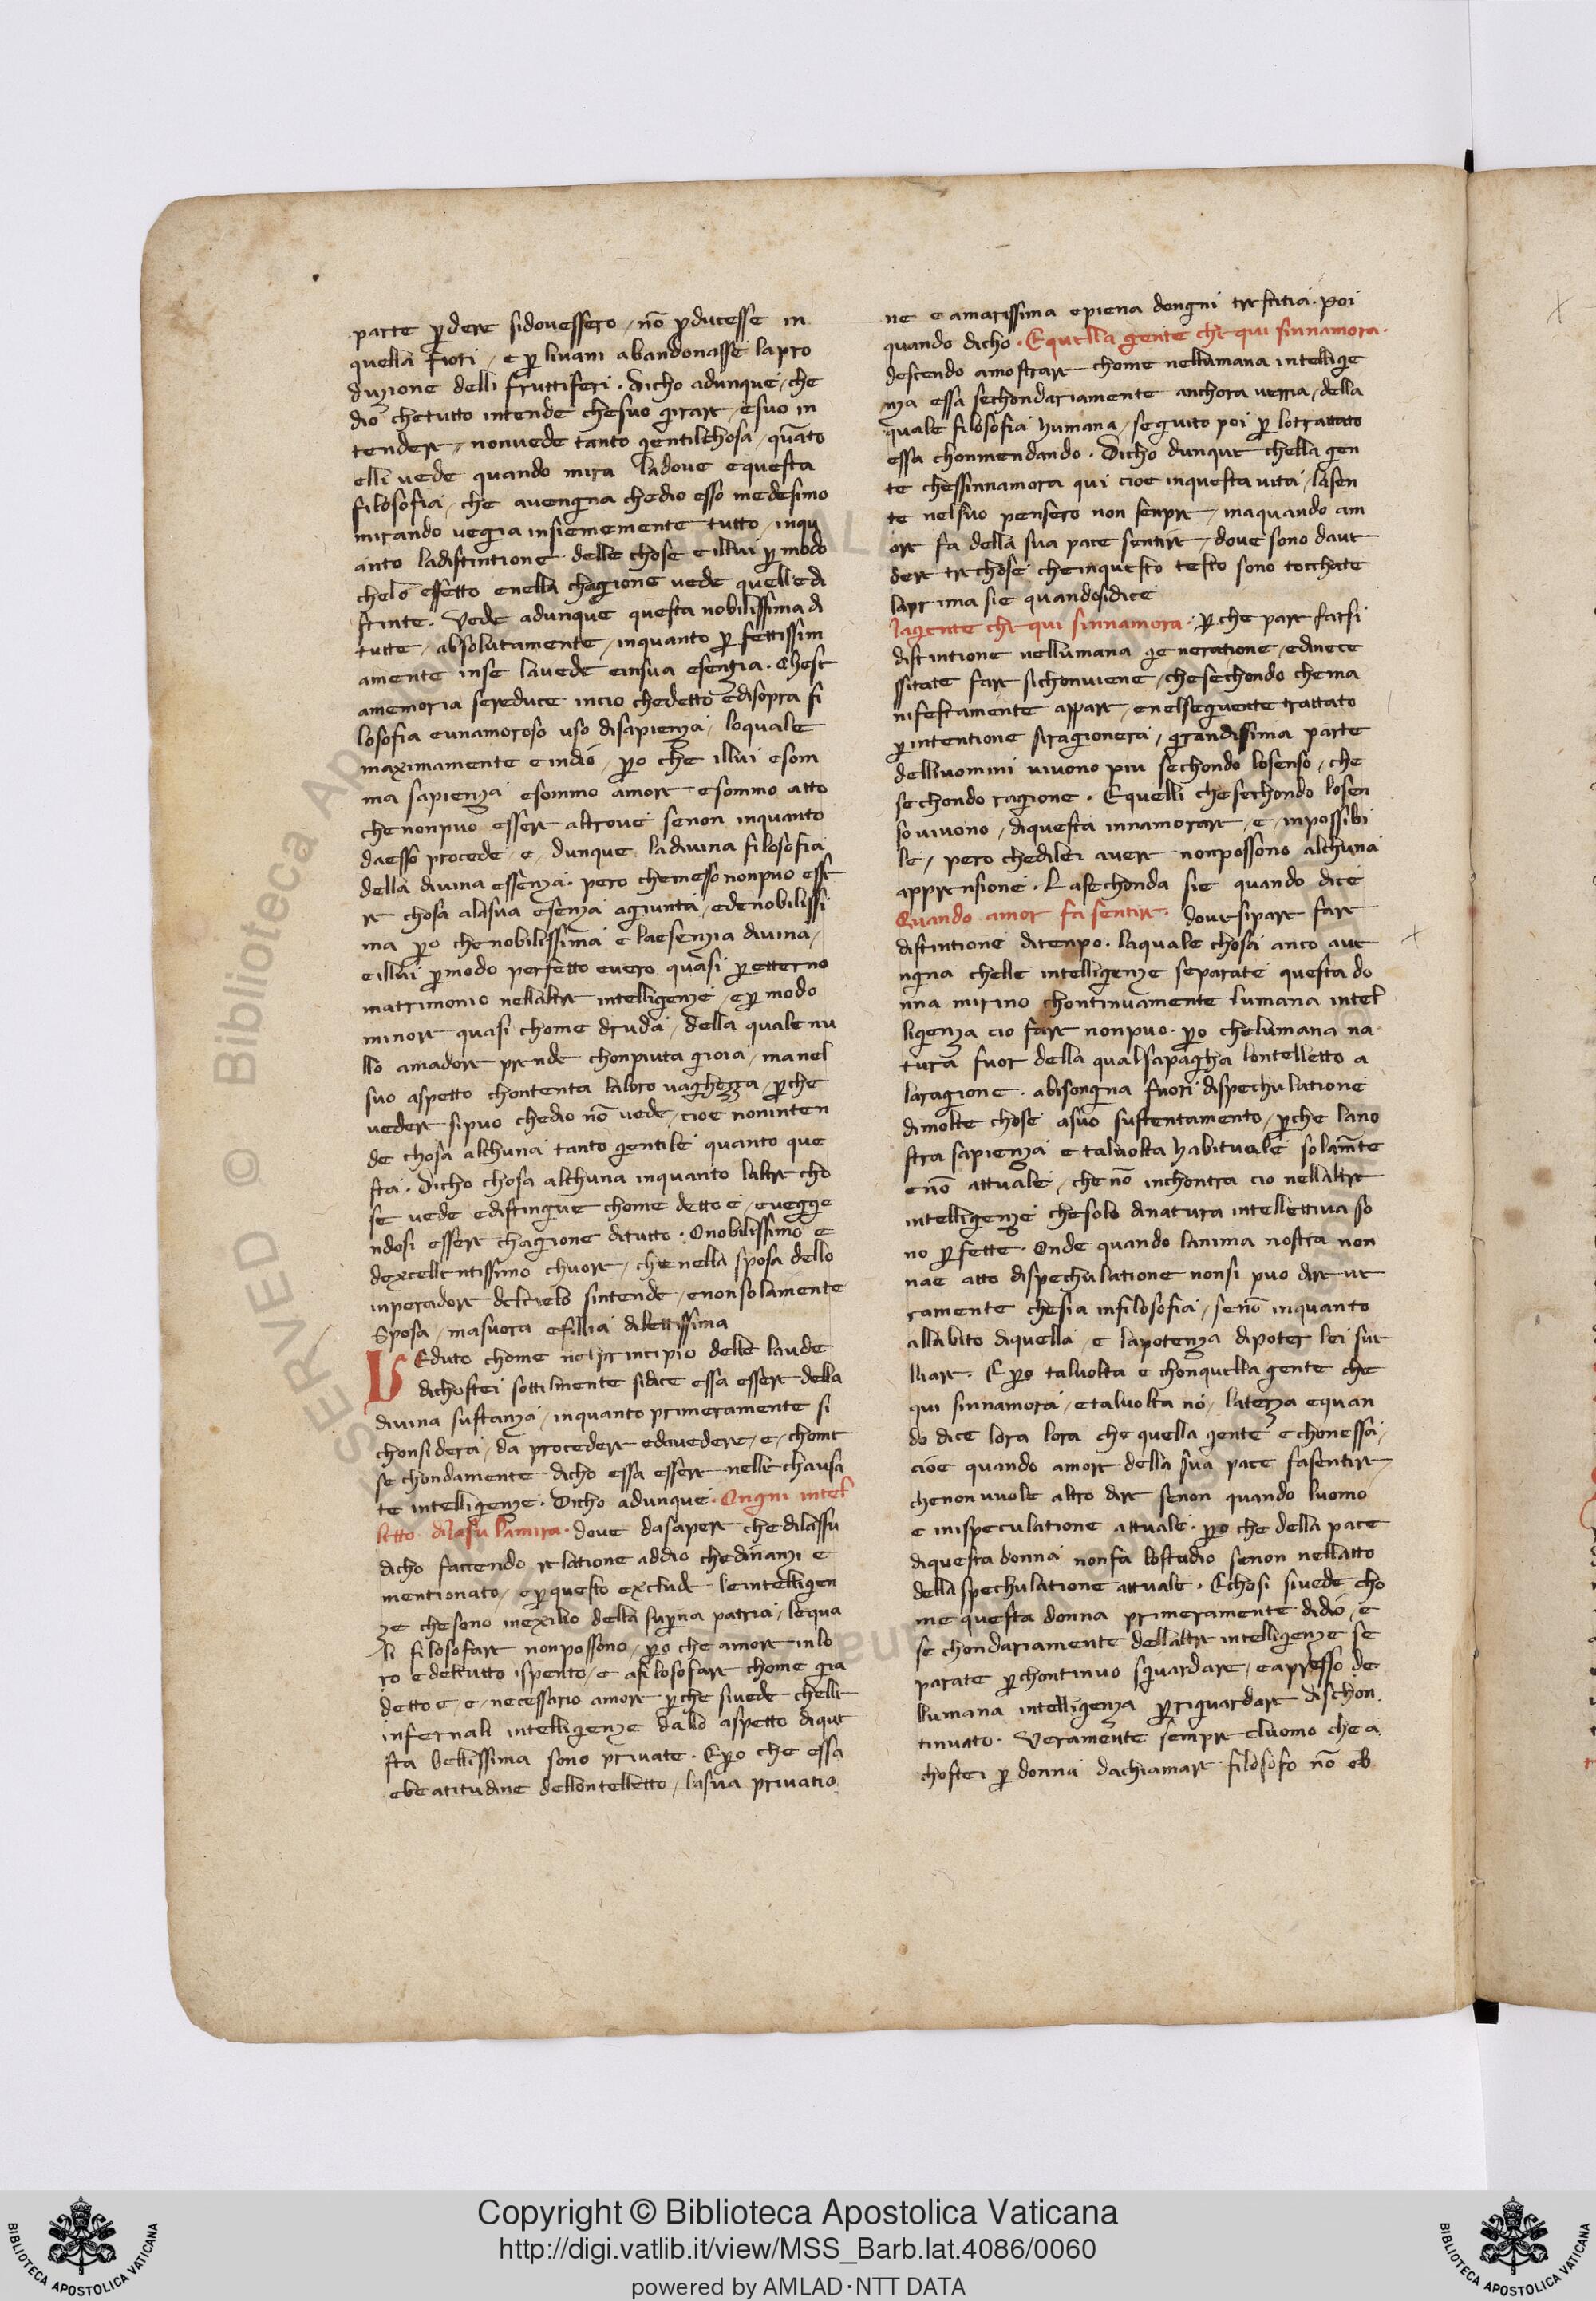 parte ꝑdere sidovessero / nō ꝓducesse in
quella fioti / e ꝑ livani abandonasse lapro
duzione delli fruttiferi . dicho adunque / che
dio chetutto intende chesuo girare / esuo in
tendere / nonvede tanto gentilchosa / quāto
elli vede quando mira ladove e questa
filosofia / che avengna chedio esso medesimo
mirando vegia insiememente tutto / inqu
anto ladistintione delle chose e illui ꝑ modo
chelo effetto enella chagione vede quelle di
stinte . Vede adunque questa nobilissima di
tutte / absolutamente / inquanto ꝑfettissim
amente inse lavede einsua esenzia . Chest
amemoria sereduce incio chedetto edisopra fi
losofia eunamoroso uso disapienza / loquale
maximamente e indio / ꝑo che illui e som
ma sapienza esommo amore esommo atto
chenonpuo essere altrove senon inquanto
daesso procede / e / dunque ladivina filosofia
della divina essenza . pero chemesso nonpuo esse
re chosa alasua esenza agiunta / edenobilissi
ma ꝑo chenobilissima e laesenzia divina /
eillui ꝑmodo perfetto evero quasi ꝑ etterno
matrimonio nellaltre intelligenze / e ꝑ modo
minore quasi chome druda / della quale nu
llo amadore prende chonpiuta gioia / manel
suo aspetto chontenta laloro vaghezza / ꝑche
vedere sipuo chedio nō vede / cioe noninten
de chosa alchuna tanto gentile quanto que
sta . dicho chosa alchuna inquanto laltre cho
se vede edistingue chome detto e / evegge
ndosi essere chagione ditutto . Onobilissimo e
dexcellentissimo chuore / chenella sposa dello
inperadore delcielo sintende / enonsolamente
Sposa / masuora efillia dilettissima
VEduto chome nelprincipio delle laude
dichostei sottilmente sidice essa essere della
divina sustanza / inquanto primeramente si
chonsidera / da procedere edavedere / e / chome
sechondamente dicho essa essere nelle chausa
te intelligenze . Dicho adunque . Ongni intel
letto dilasu lamira . dove dasapere chedilassu
dicho faccendo relatione addio chedinanzi e
mentionato / e ꝑquesto exclude leintelligen
ze chesono inexilio della suꝑna patria / lequa
li filosofare nonpossono / ꝑo che amore inlo
ro e deltutto ispento / e afilosofare chome gia
detto e / e necessario amore ꝑche sivede chelle
infernali intelligenze dallo aspetto dique
sta bellissima sono private . Eꝑo che essa
ebeatitudine dellontelletto / lasua privatio
ne e amarissima epiena dongni trestitia . poi
quando dicho . Equella gente che qui sinnamora .
descendo amostrare chome nellumana intellige
nza essa sechondariamente anchora vegnia / della
quale filosofia humana / seguito poi ꝑ lotrattato
essa chonmendando . Dicho dunque chella gen
te chessinnamora qui cioe inquesta vita / lasen
te nelsuo pensero non senpre / maquando am
ore fa della sua pace sentire / dove sono dave
dere tre chose cheinquesto testo sono tocchate
laprima sie quandosidice
lagente che qui sinnamora . ꝑche pare farsi
distintione nellumana generatione / ednece
ssitate fare sichonviene / chesechondo chema
nifestamente appare / enelseguente trattato
ꝑ intentione siragionera / grandissima parte
delliuomini vivono piu sechondo losenso / che
sechondo ragione . Equelli chesechondo losen
so vivono / diquesta innamorare / e / inpossibi
le / pero chedilei avere nonpossono alchuna
apprensione . Lasechonda sie quando dice
Quando amor fa sentir . dovesipare fare
distintione ditenpo . laquale chosa anco ave
ngna chelle intelligenze separate questa do
nna mirino chontinuamente lumana intel
ligenza cio fare nonpuo . ꝑo chelumana na
tura fuor della qualsapagha lontelletto a
laragione . abisongna fuori dispechulatione
dimolte chose asuo sustentamento / ꝑche lano
stra sapienza e talvolta habituale solamēte
enō attuale / che nō inchontra cio nellaltre
intelligenze chesolo dinatura intellettiva so
no ꝑfette . Onde quando lanima nostra non
nae atto dispechulatione nonsi puo dire ve
ramente chesia infilosofia / senō inquanto
allabito diquella / e lapotenza dipoter lei sve
lliare . Eꝑo talvolta e chonquella gente che
qui sinnamora / etalvolta nō / laterza equan
do dice lora lora che quella gente e chonessa /
cioe quando amore della sua pace fasentire /
chenonvuole altro dire senon quando luomo
e inispeculatione attuale . ꝑo che della pace
diquesta donna nonfa lostudio senon nellatto
della spechulatione attuale . Echosi sivede cho
me questa donna primeramente didio / e
sechondariamente dellaltre intelligenze se
parate ꝑchontinuo sguardare / eapresso de
llumana intelligenza ꝑriguardare dischon
tinuato . Veramente sempre eluomo che a
chostei ꝑ donna dachiamare filosofo nō ob
Copyright © Biblioteca Apostolica Vaticana
http://digi.vatlib.it/view/MSS_Barb.lat.4086/0060
powered by AMLAD·NTT DATA
BIBLIOTECA APOSTOLICA VATICANA
BIBLIOTECA APOSTOLICA VATICANA